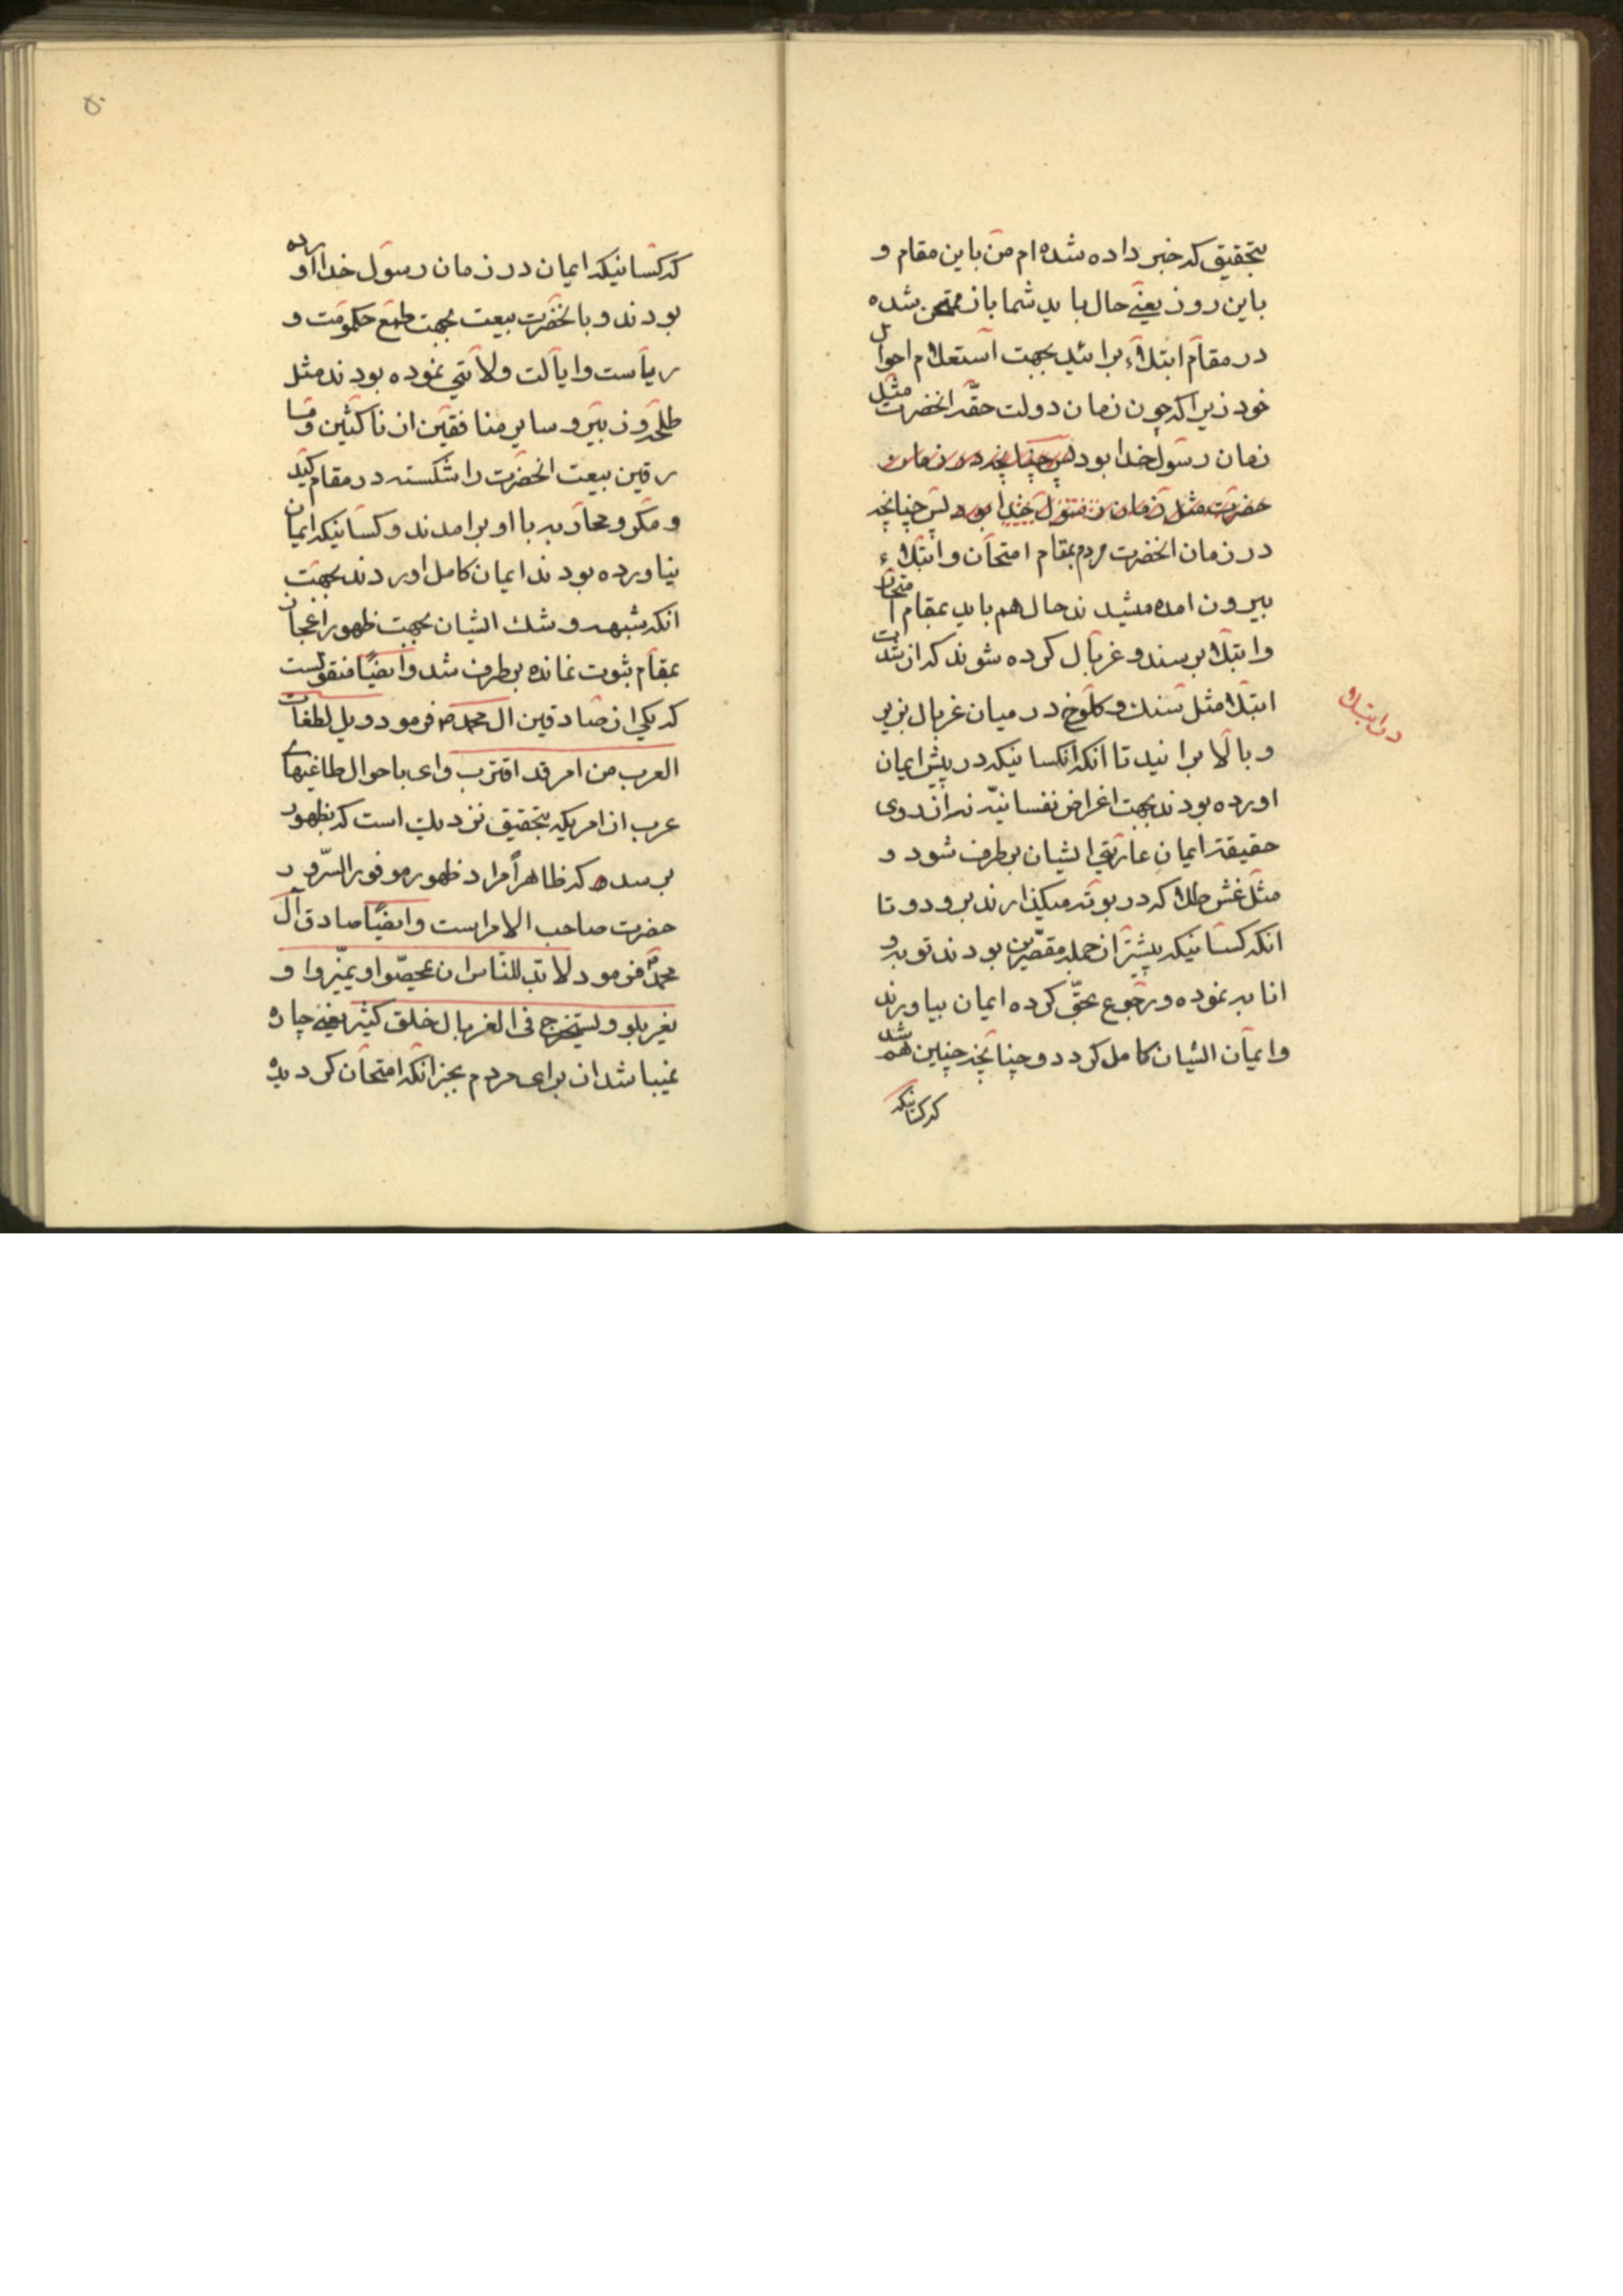 بتحقیق که خبر داده شده‌ام من باین مقام و
باین روز یعنی حال باید شما باز ممتحن شده
در مقام ابتلاء برائید بجهت استعلام احوال
خود زیرا که چون زمان دولت حقّه انحضرت مثل
زمان رسول خدا بود پس چنانچه در زمان
حضرت مثل زمان رسول خدا بود پس چنانچه
در زمان انحضرت مردم بمقام امتحان و ابتلاء
بیرون امده میشدند حال هم باید بمقام امتحان
و ابتلا برسند و غربال کرده شوند که از شدت
ابتلا مثل سنك و کلوخ در میان غربال بزیر
و بالا برانید تا انکه انکسانیکه در پیش ایمان
اورده بودند بجهت اغراض نفسانیّه نه از روی
حقیقة ایمان عاریتی ایشان برطرف شود و
مثل غش طلا که در بوته میگذارند برود و تا
انکه کسانیکه پیشتر از جمله مقصّرین بودند توبه و
انابه نموده و رجوع بحقّ کرده ایمان بیاورند
و ایمان ایشان کامل کردد و چنانچه چنین هم شد
که کسانیکه
در ابتلا
۵۰
که کسانیکه ایمان در زمان رسول خدا اورده
بودند و بانحضرت بیعت بجهت طمع حکومت و
ریاست و ایالت ولایتی نموده بودند مثل
طلحه و زبیر و سایر منافقین از ناکثین و قسا
رقین بیعت انحضرت را شکسته در مقام کید
و مکر و محاربه با او برامدند و کسانیکه ایمان
نیاورده بودند ایمان کامل اوردند بجهت
انکه شبهه و شك ایشان بجهت ظهور اعجاز
بمقام ثبوت نمانده برطرف شد و ایضًا منقولست
که یکی از صادقین ال محمد ص فرمود ویل لطغات
العرب من امر قد اقترب وای باحوال طاغیهای
عرب از امریکه بتحقیق نزدیك است که بظهور
برسد که ظاهراً مراد ظهور موفور السّرور
حضرت صاحب الامر است و ایضًا صادق آل
محمد فرمود لابدّ للنّاس ان یمحصّوا و یمیّزوا و
یغربلو و لیستخرج فی الغربال خلق کثیر یعنی چاره
نمیباشد از برای مردم بجز انکه امتحان کردیده